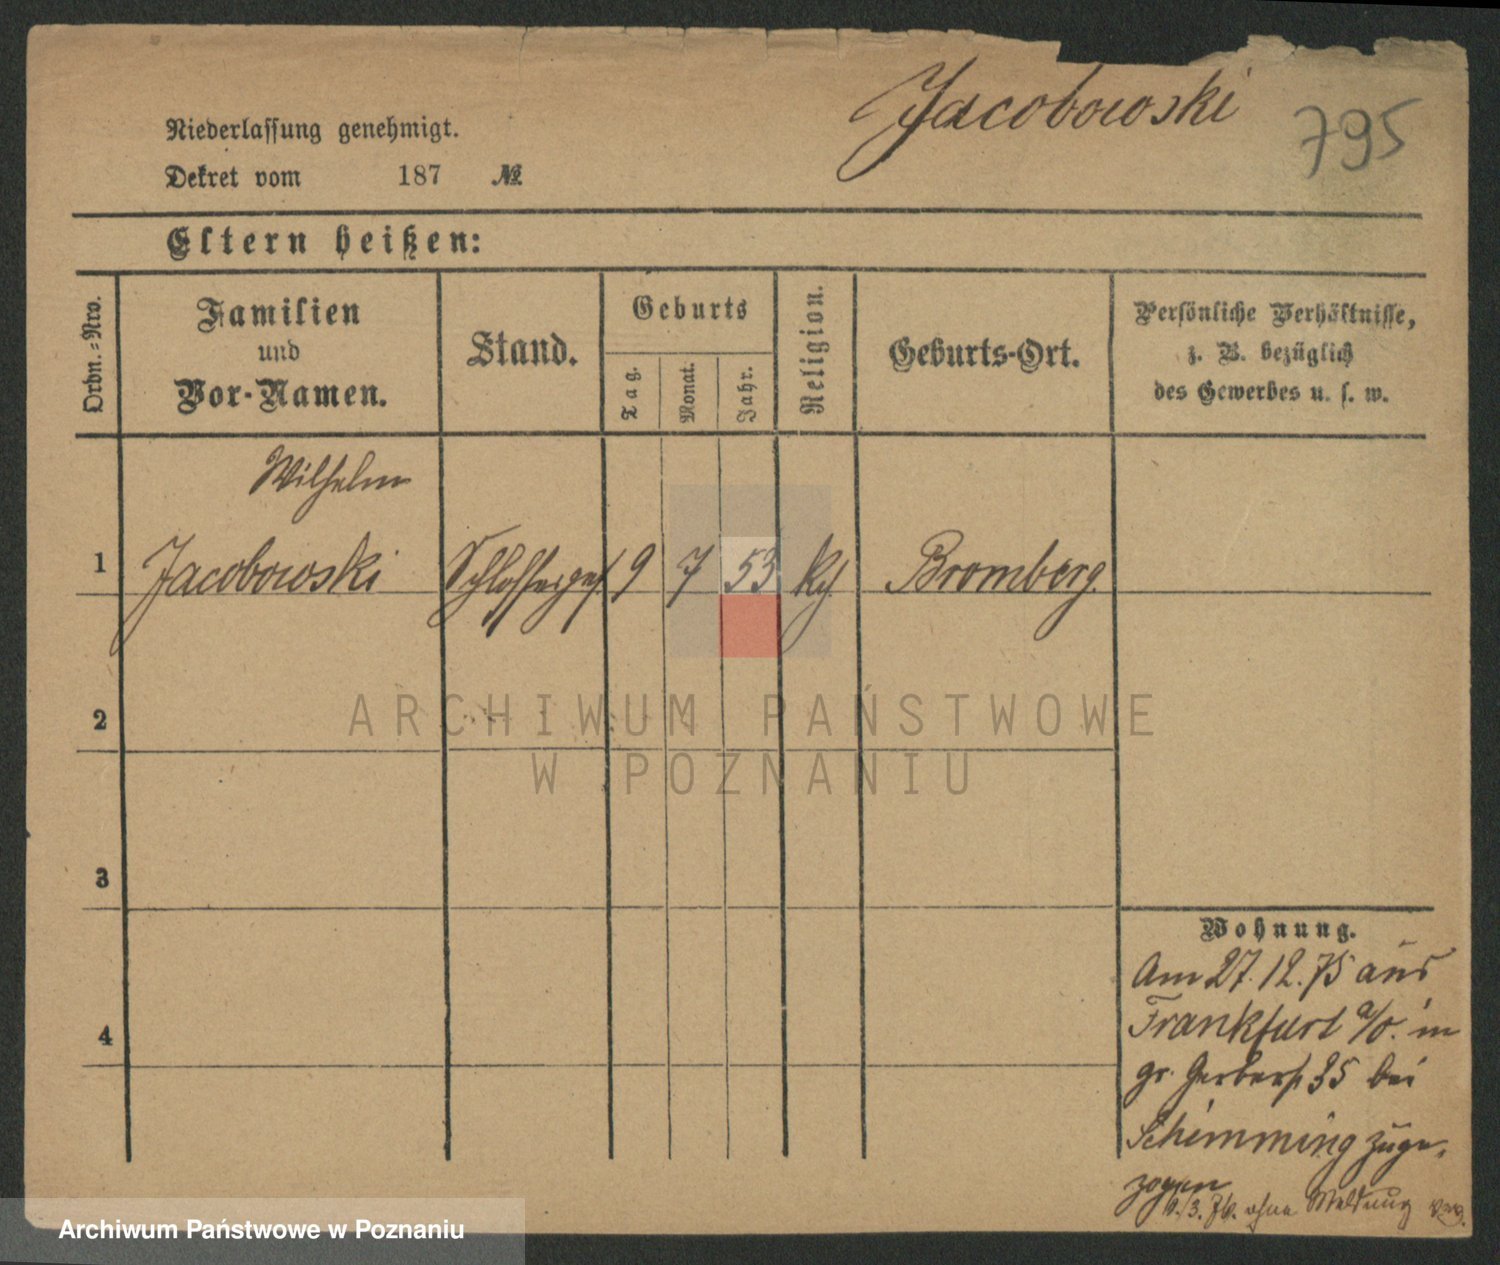 Jacobowski
795
Niederlassung genehmigt.
Dekret vom 187 №
Eltern heißen:
Ordn.-Nro.
Familien
und
Vor-Namen.
Stand.
Geburts
Tag.
Monat.
Jahr.
Religion.
Geburts-Ort.
Persönliche Verhältnisse,
z. B. bezüglich
des Gewerbes u. s. w.
Wilhelm
1 Jacobowski Schlosserges. 9 7 53 Bromberg.
2
3
4
Wohnung.
Am 27.12.75 aus
Frankfurt a/O. in
gr. Gerberst. 35 bei
Schimming zuge-
zogen
3. 76. ohne Meldung
ARCHIWUM PAŃSTWOWE
W POZNANIU
Archiwum Państwowe w Poznaniu